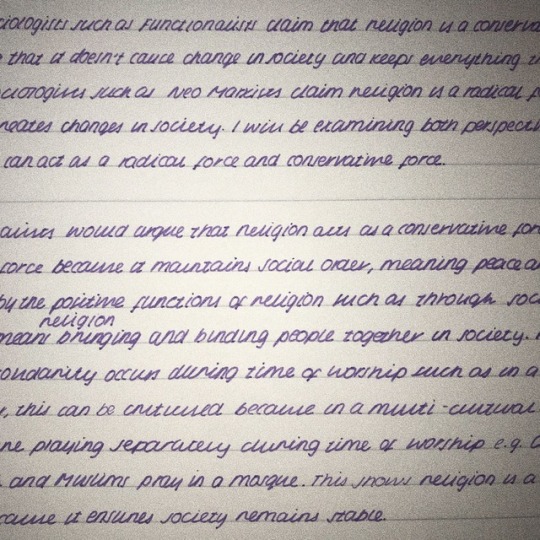 sociologists such as Functionalists claim that religion is a conserva
that it doesn't cause change in society and keeps everything th
sociologists such as Neo Marxists claim religion is a radical f
creates changes in society. I will be examining both perspecti
can act as a radical force and conservative force.
would argue that religion acts as a conservative for
force because it maintains social order, meaning peace a
by the positive functions of religion such as through soc
religion
means bringing and binding people together in society.
solidarity occurs during time of worship such as in a
, this can be criticised because in a multi-cultural
praying separately during time of worship e.g. C
and Muslims pray in a mosque. This shows religion is a
because it ensures society remains stable.